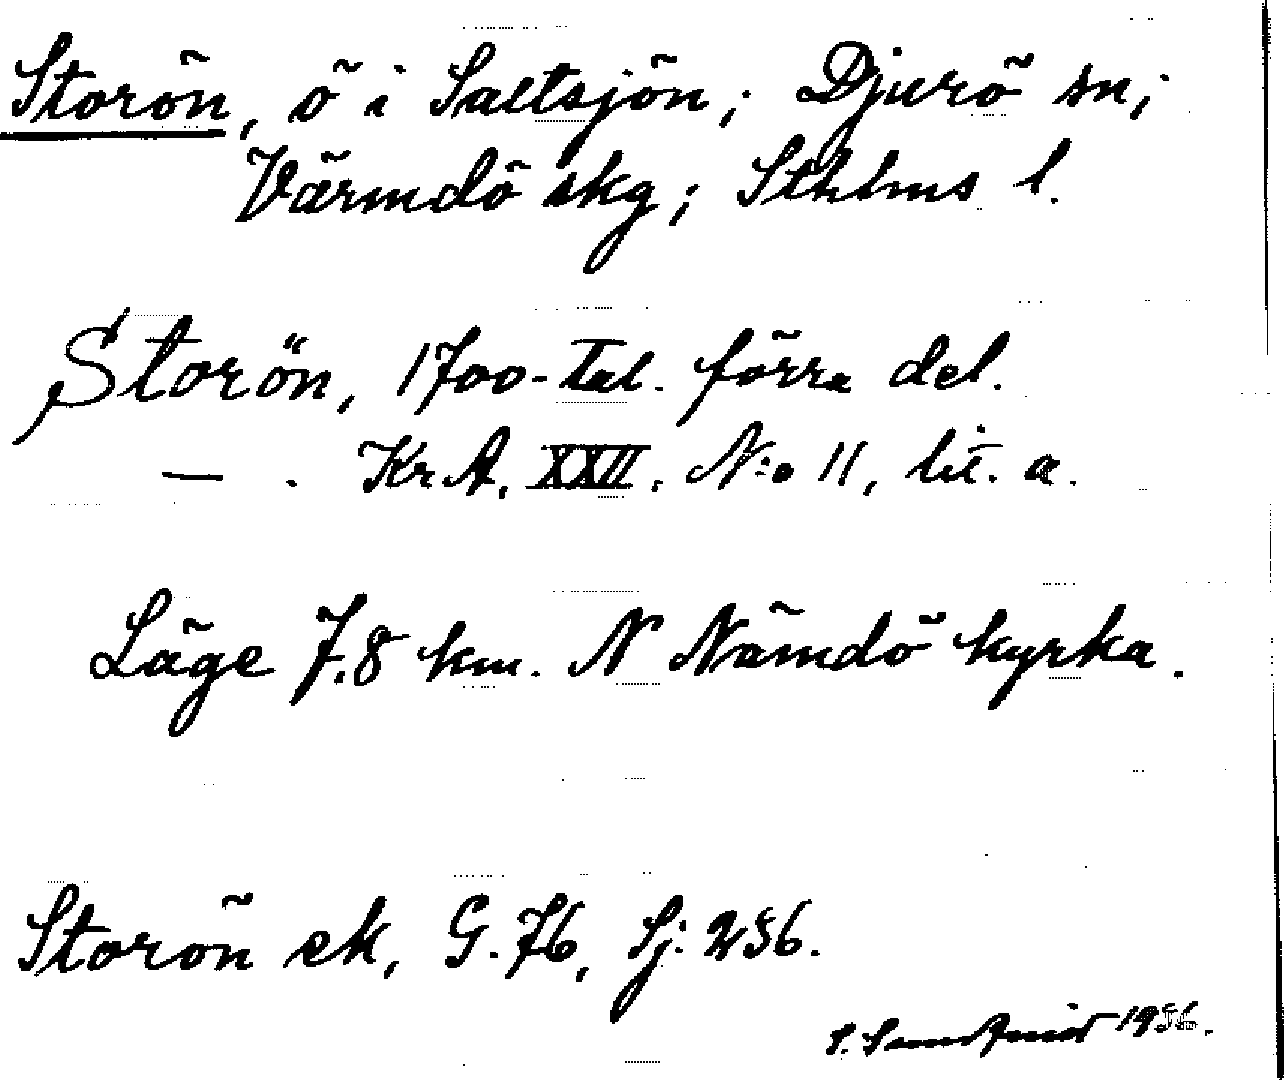 Storön, ö i Saltsjön; Djurö sn;
Värmdö skg; Sthlms l.
Storön, 1700-tal. förra del.
— . Kr.A. XXII. N:o 11, lit. a.
Läge 7.8 km. N Nämdö kyrka.
Storön ek, G. 76, Sj: 256.
S. 1936.